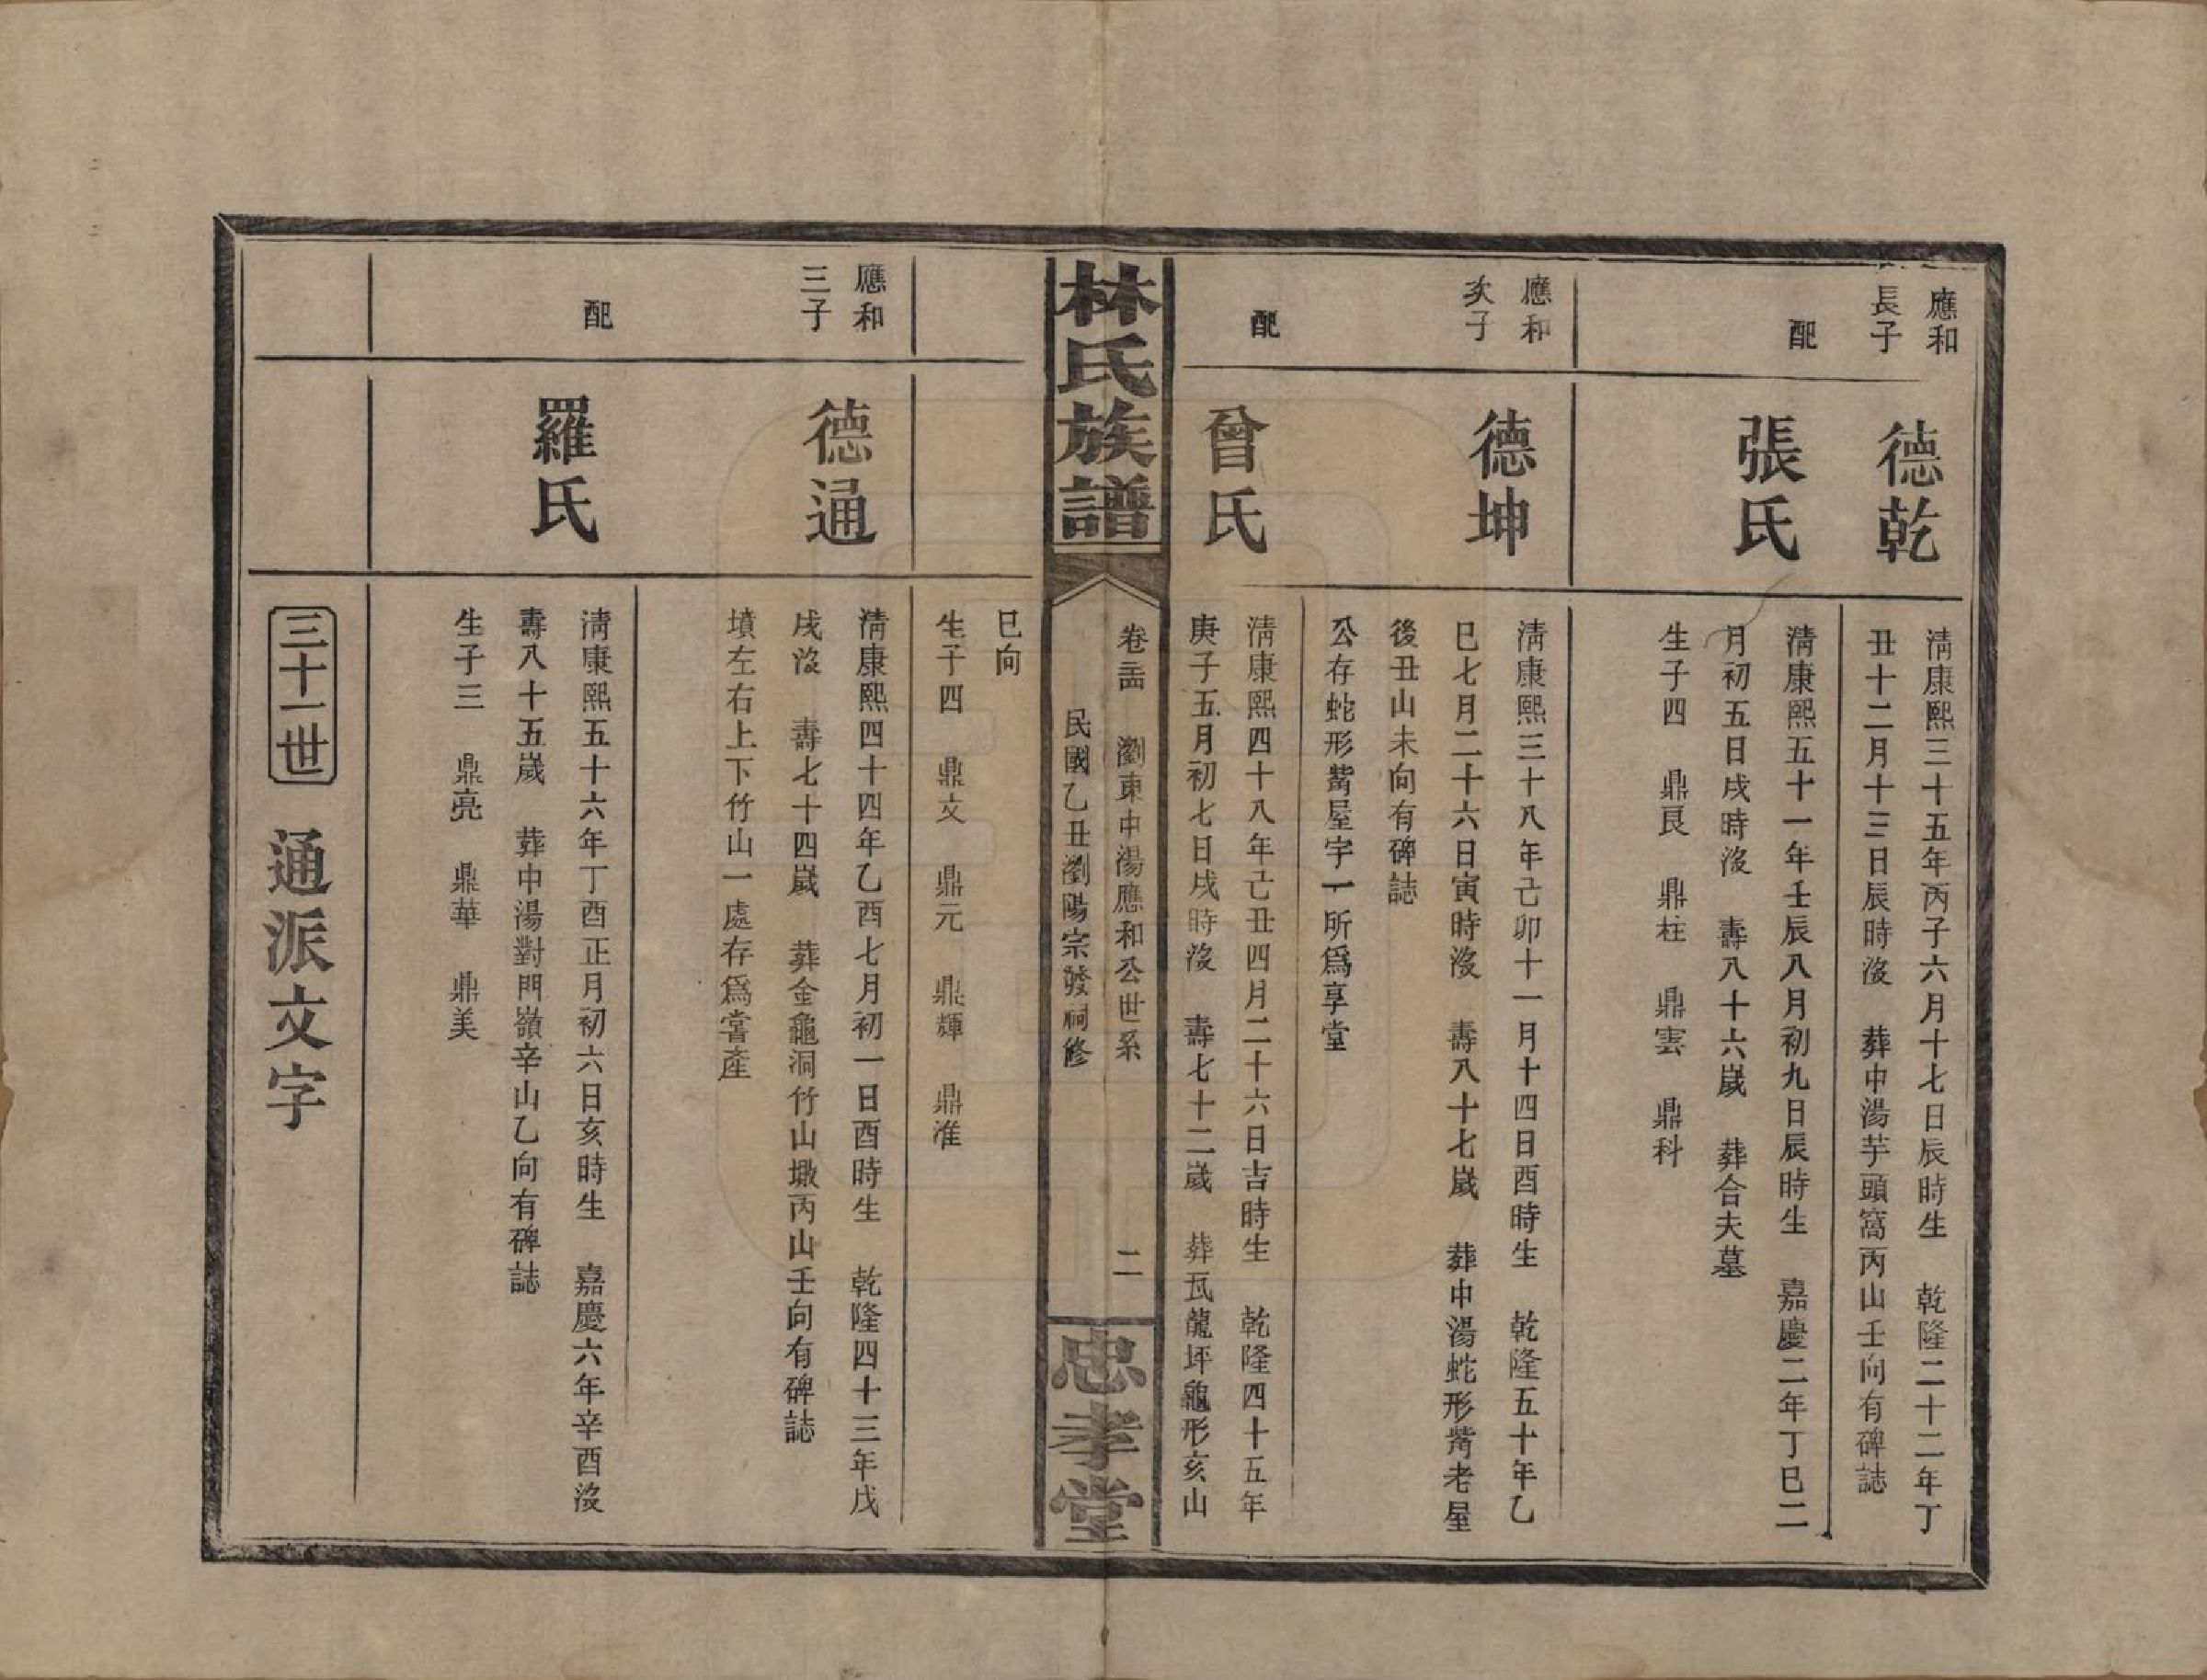 應和
長子
德乾
淸康熙三十五年丙子六月十七日辰時生　乾隆二十二年丁
丑十二月十三日辰時沒　葬中湯芋頭窩丙山壬向有碑誌
配
張氏
淸康熙五十一年壬辰八月初九日辰時生　嘉慶二年丁巳二
月初五日戌時沒　壽八十六嵗　葬合夫墓
生子四　鼎良　鼎柱　鼎雲　鼎科
應和
次子
德坤
淸康熙三十八年己卯十一月十四日酉時生　乾隆五十年乙
巳七月二十六日寅時沒　壽八十七嵗　葬中湯蛇形觜老屋
後丑山未向有碑誌
公存蛇形觜屋宇一所爲享堂
配
曾氏
淸康熙四十八年己丑四月二十六日吉時生　乾隆四十五年
庚子五月初七日戌時沒　壽七十二嵗　葬瓦龍坪龜形亥山
林氏族譜
卷
瀏東中湯應和公世系
二
民國乙丑瀏陽宗發祠修
忠孝堂
巳向
生子四　鼎文　鼎元　鼎輝　鼎淮
應和
三子
德通
淸康熙四十四年乙酉七月初一日酉時生　乾隆四十三年戊
戌沒　壽七十四嵗　葬金龜洞竹山墩丙山壬向有碑誌
墳左右上下竹山一處存爲嘗產
配
羅氏
淸康熙五十六年丁酉正月初六日亥時生　嘉慶六年辛酉沒
壽八十五嵗　葬中湯對門嶺辛山乙向有碑誌
生子三　鼎亮　鼎華　鼎美
三十一世　通派文字